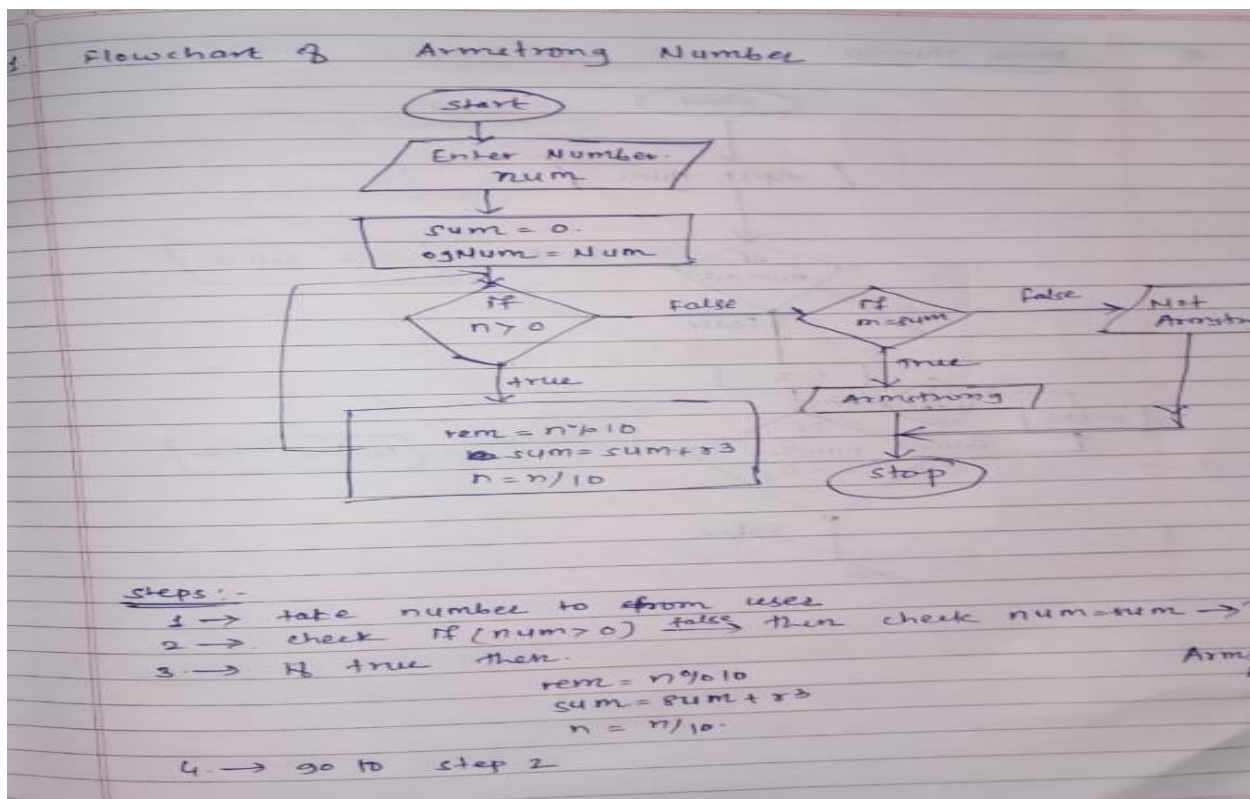 1. Flowchart of Armstrong Number
Start
Enter Number.
num
sum = 0.
ogNum = Num
if
n > 0
False
if
m = sum
False
Not
Armst
true
True
Armstrong
rem = n % 10
sum = sum + r3
n = n / 10
Stop
Steps :-
1 → take number to from user
2 → check if (num > 0) false, then check num = sum →
Arm
3 → If true then.
rem = n % 10
sum = sum + r3
n = n / 10.
4. → go to step 2